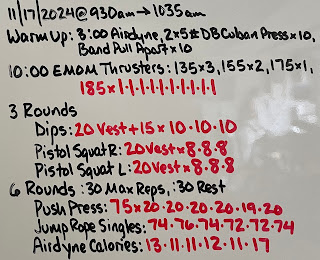 11/17/2024@930am→1035am
Warm Up: 3:00 Airdyne, 2x5# DB Cuban Press x10,
Band Pull Apart x10
10:00 EMOM Thrusters: 135x3, 155x2, 175x1,
185x1·1·1·1·1·1·1·1·1
3 Rounds
Dips: 20 Vest + 15 x 10·10·10
Pistol Squat R: 20 Vest x 8·8·8
Pistol Squat L: 20 Vest x 8·8·8
6 Rounds :30 Max Reps, :30 Rest
Push Press: 75x20·20·20·20·19·20
Jump Rope Singles: 74·76·74·72·72·74
Airdyne Calories: 13·11·11·12·11·17